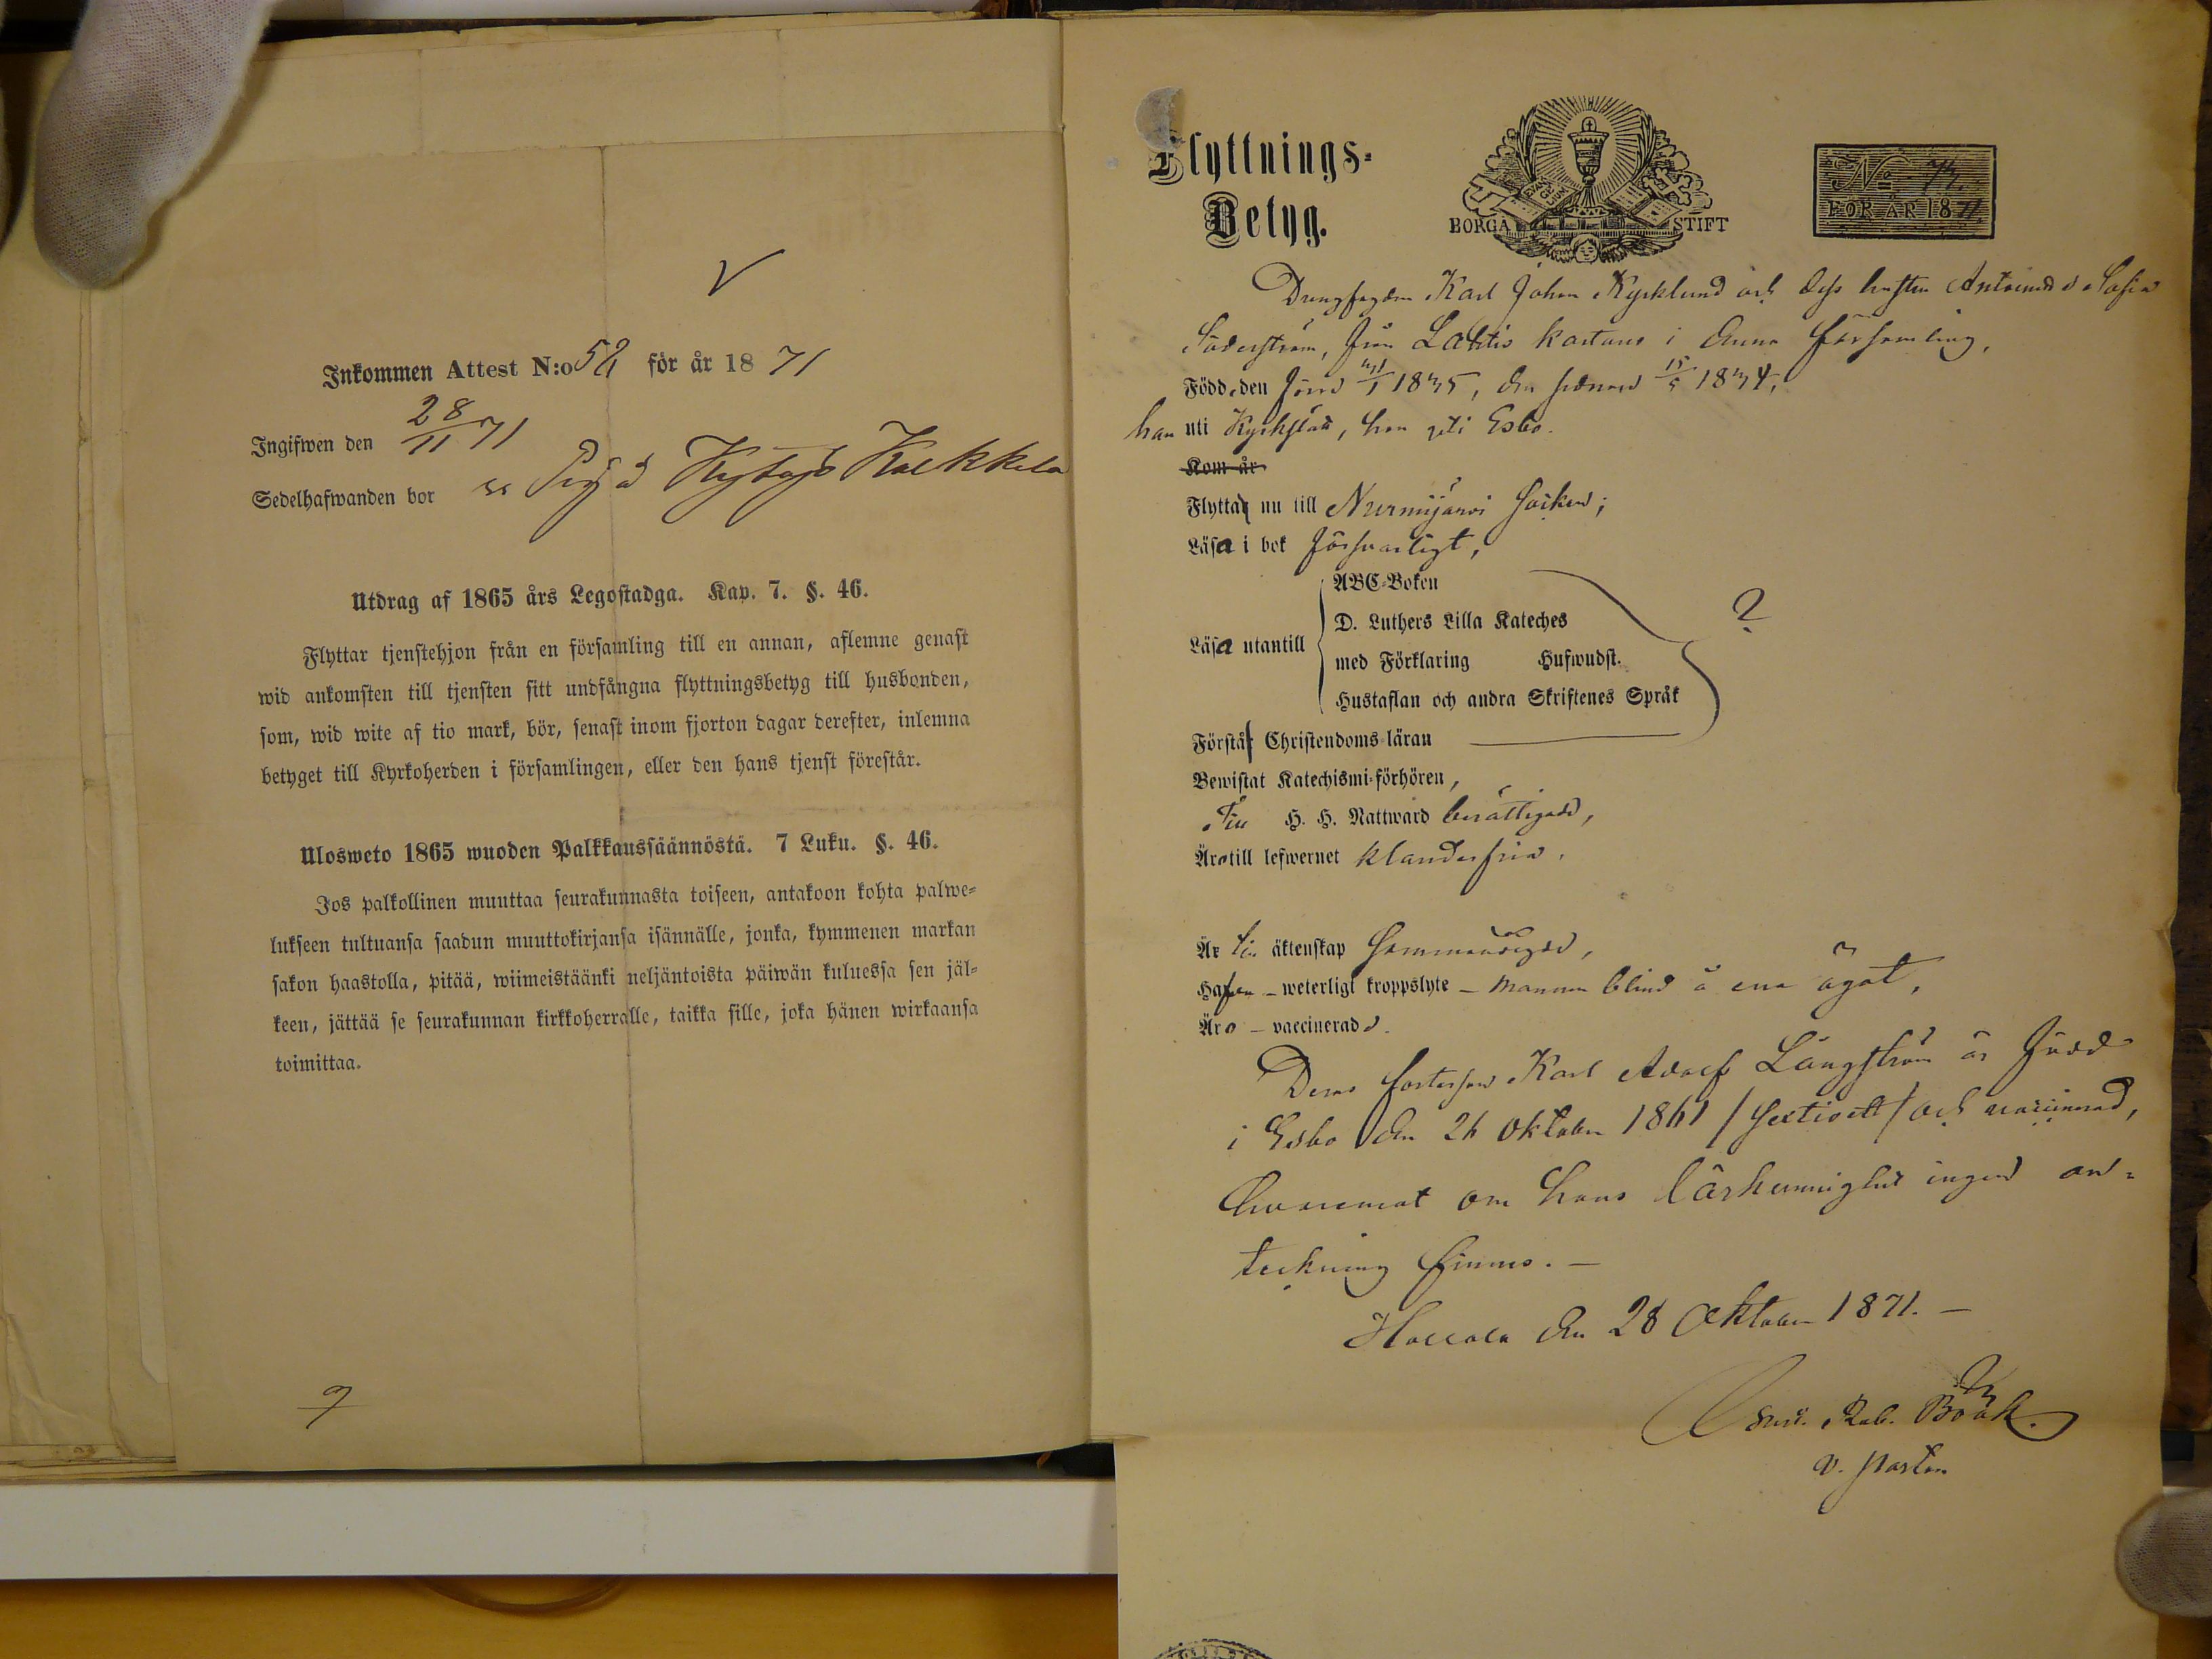 V
Inkommen Attest N:o 52 för år 1871
Ingifwen den 28/11 71
Sedelhafwanden bor
Utdrag af 1865 års Legostadga. Kap. 7. §. 46.
Flyttar tjenstehjon från en församling till en annan, aflemne genast
wid ankomsten till tjensten sitt undfångna flyttningsbetyg till husbonden,
som, wid wite af tio mark, bör, senast inom fjorton dagar derefter, inlemna
betyget till Kyrkoherden i församlingen, eller den hans tjenst förestår.
Ulosweto 1865 wuoden Palkkaussäännöstä. 7 Luku. §. 46.
Jos palkollinen muuttaa seurakunnasta toiseen, antakoon kohta palwe-
lukseen tultuansa saadun muuttokirjansa isännälle, jonka, kymmenen markan
sakon haastolla, pitää, wiimeistäänki neljäntoista päiwän kuluessa sen jäl-
keen, jättää se seurakunnan kirkkoherralle, taikka sille, joka hänen wirkaansa
toimittaa.
Flyttnings-
Betyg.
EVAN GE LIUM
BORGÅ STIFT
No
FÖR ÅR 1871
Karl Johan Kycklund och dess hustru Sofia
Söderström, från Lahtis kartano i denna församling,
Född, den förre 1835, den senare 15/5 1834,
han uti Kyrkslätt, hon uti Esbo.
Kom år
Flytta nu till Nurmijärvi socken;
Läsa i bok försvarligt,
ABC-Boken
D. Luthers Lilla Kateches
Läsa utantill
med Förklaring Hufwudst.
Hustaflan och andra Skriftenes Språk
?
Förstå Christendoms-läran
Bewistat Katechismi-förhören,
Till H. H. Nattward berättigade,
Äro till lefwernet klanderfria.
Är till äktenskap sammanvigde,
Hafwa - weterligt kroppslyte - mannen blind å ena ögat,
Äro - vaccinerade.
Deras fosterson Karl Adolf Långström är född
i Esbo den 26 Oktober 1861 /sextioett/ och vaccinerad,
hvaremot om hans lärkunnighet ingen an-
teckning finnes. -
Hollola den 28 Oktober 1871. -
Böök.
v. pastor